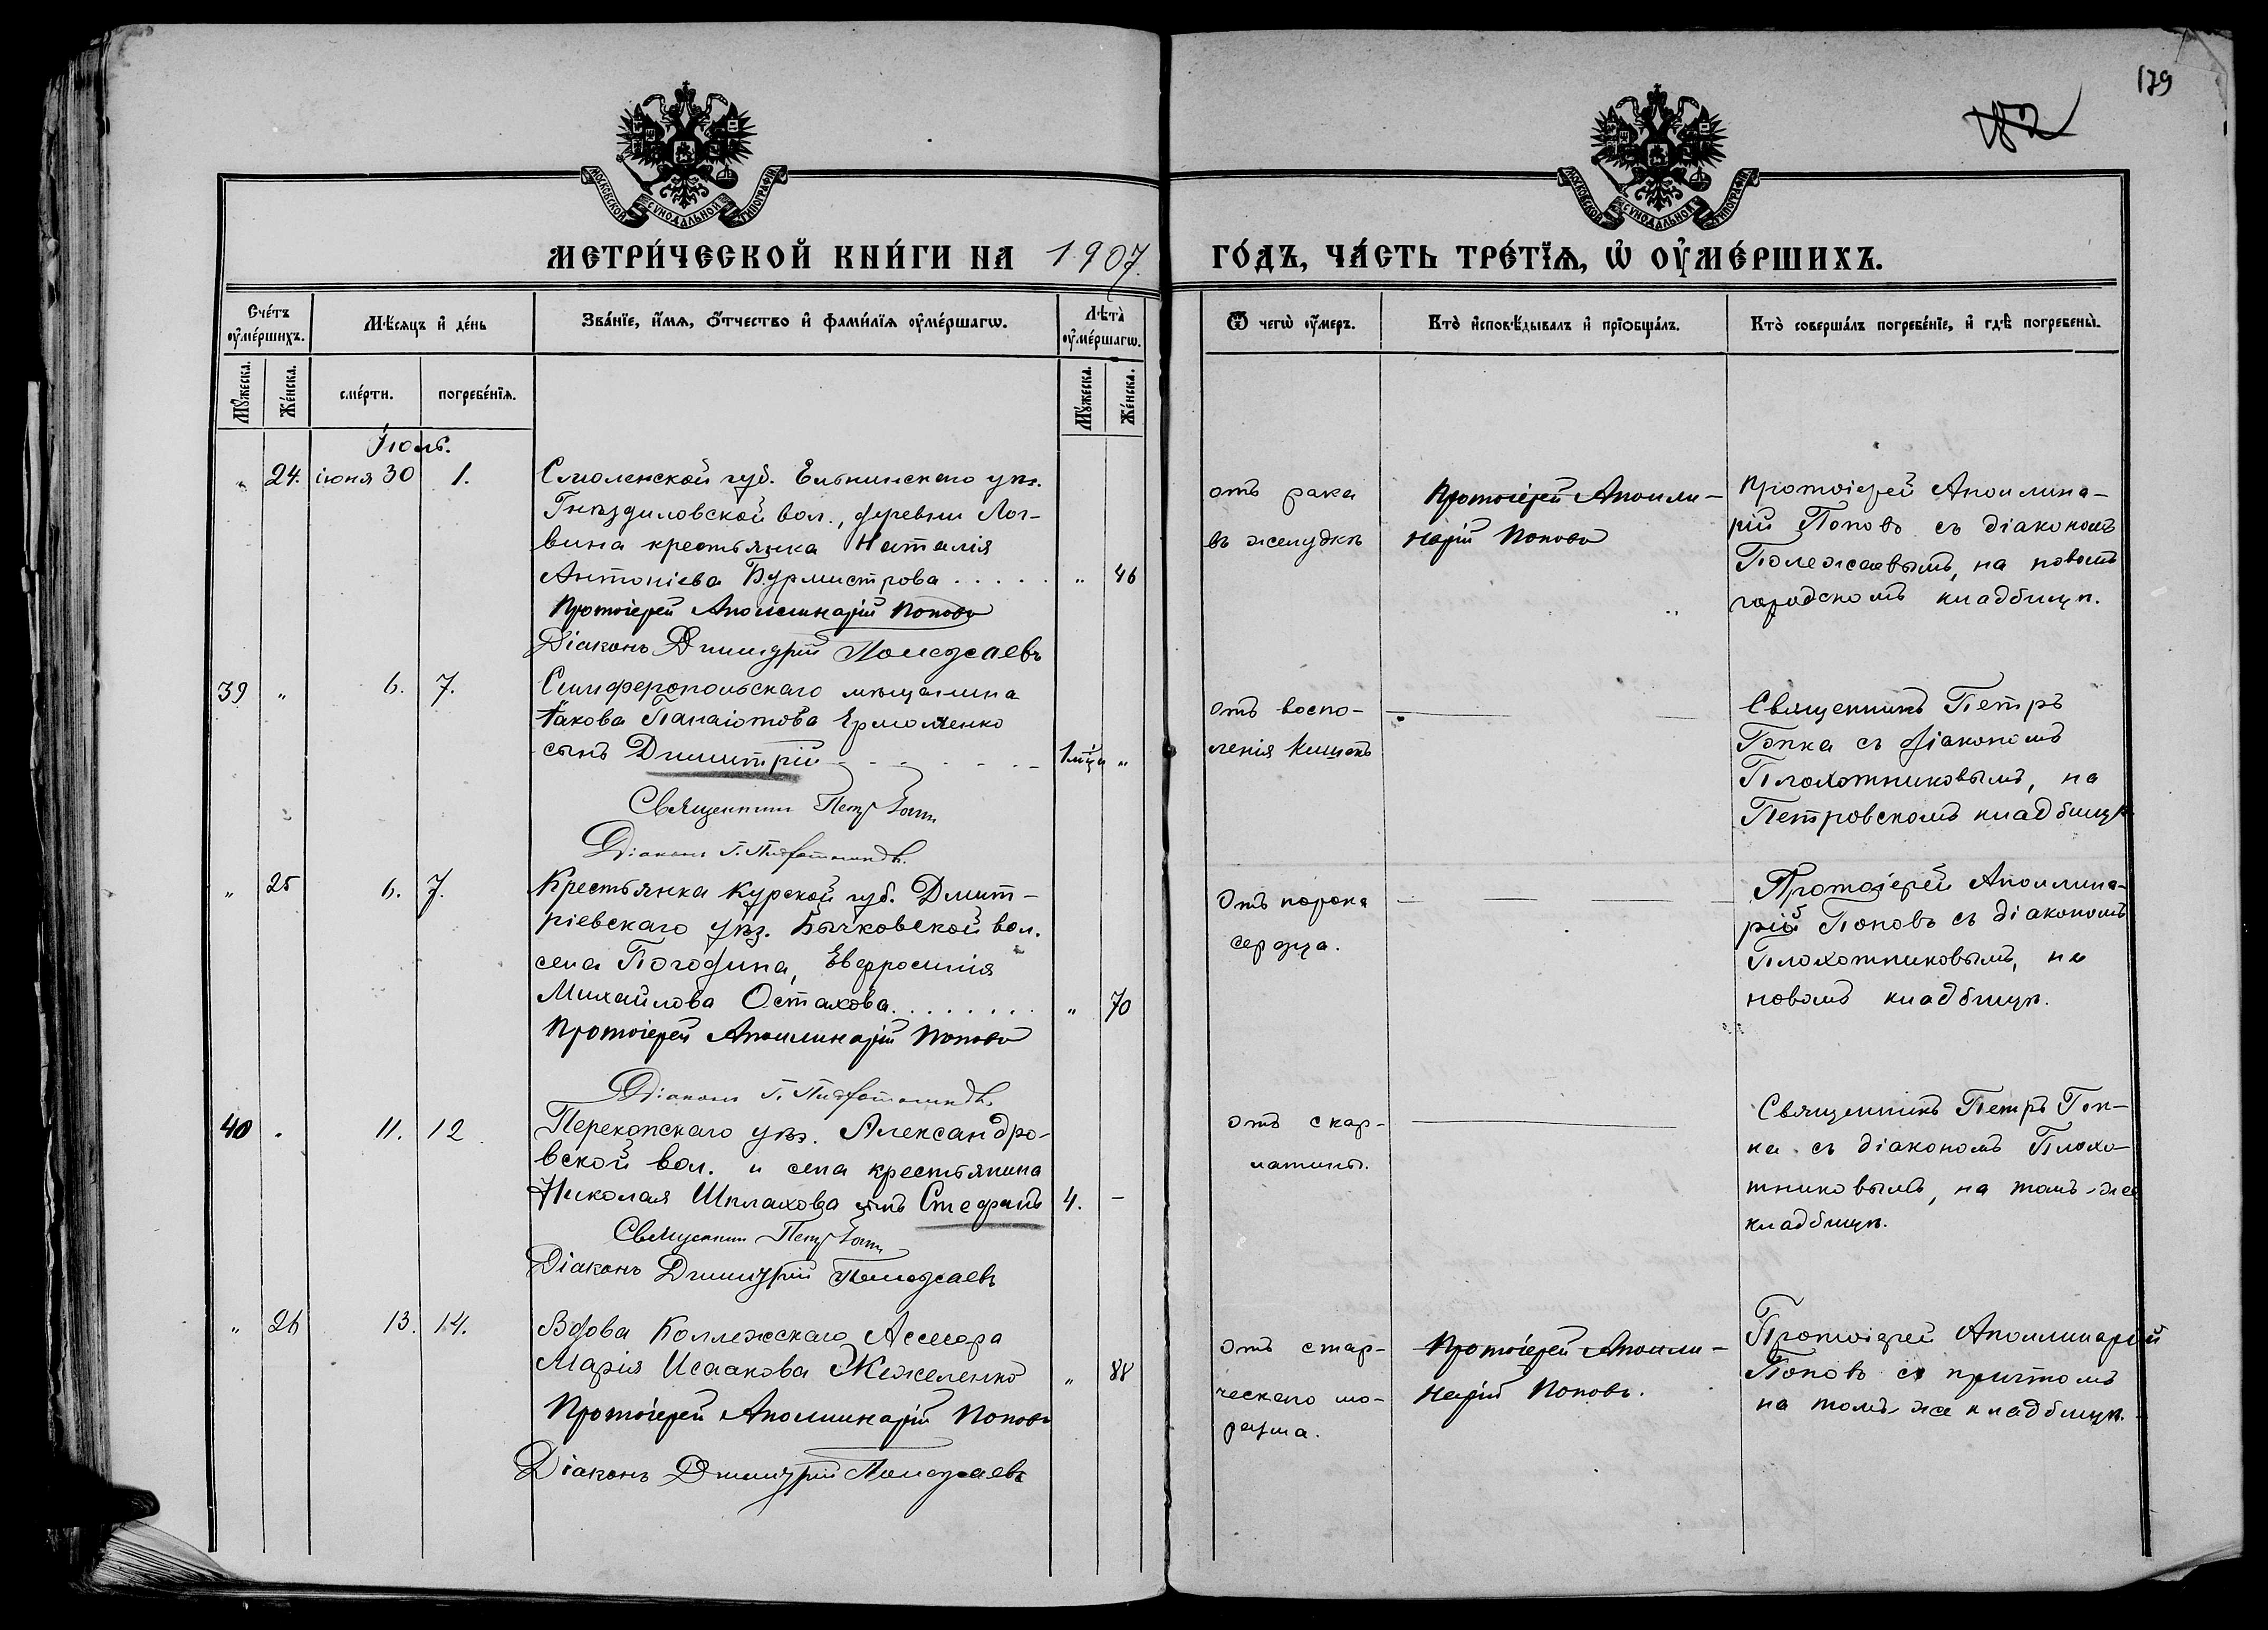 179
182
МОСКОВСКОЙ СѴНОДАЛЬНОЙ ТИПОГРАФІИ
МОСКОВСКОЙ СѴНОДАЛЬНОЙ ТИПОГРАФІИ
МЕТРИ́ЧЕСКОЙ КНИ́ГИ НА 1907 ГО́ДЪ, ЧА́СТЬ ТРЕ́ТІѦ, Ѡ ОУМЕ́РШИХЪ.
Сче́тъ оуме́ршихъ.
Мѣ́сяцъ и де́нь
Зва́нїе, и́мѧ, о́тчество и фами́лїѧ оуме́ршагѡ.
Лѣта̀ оуме́ршагѡ.
Ѿ чегѡ̀ оу́меръ.
Кто̀ исповѣ́дывалъ и прїобща́лъ.
Кто̀ соверша́лъ погребе́нїе, и гдѣ̀ погребены̀.
Му́жеска. Же́нска. сме́рти. погребе́нїѧ. Му́жеска. Же́нска.
Іюль.
" 24. іюня 30 1.
Смоленской губ. Ельнинскаго уѣз.
Гнѣздиловской вол., деревни Лог-
вина крестьянка Наталія
Антоніева Бурмистрова . . . . . " 46
Протоіерей Аполлинарій Поповъ
Діаконъ Димитрій Полежаевъ
отъ рака
въ желудкѣ
Протоіерей Аполли-
нарій Поповъ
Протоіерей Аполлина-
рій Поповъ съ діакономъ
Полежаевымъ, на новомъ
городскомъ кладбищѣ.
39 " 6. 7.
Симферопольскаго мѣщанина
Іакова Панаіотова Ермоленко
сынъ Димитрій 1 мц "
Священникъ Петръ Гопка
Діаконъ Г. Плохотниковъ.
отъ воспа-
ленія кишекъ
Священникъ Петръ
Гопка съ діакономъ
Плохотниковымъ, на
Петровскомъ кладбищѣ
" 25 6. 7.
Крестьянка Курской губ. Дмит-
ріевскаго уѣз. Бычковской вол.
села Погодина, Евфросинія
Михайлова Остахова . . . . . . . " 70
Протоіерей Аполлинарій Поповъ
Діаконъ Г. Плохотниковъ.
Отъ порока
сердца.
Протоіерей Аполлина-
рій Поповъ съ діакономъ
Плохотниковымъ, на
новомъ кладбищѣ.
40 " 11. 12.
Перекопскаго уѣз. Александро-
вской вол. и села крестьянина
Николая Шплахова сынъ Стефанъ 4. -
Священникъ Петръ Гопка
Діаконъ Димитрій Полежаевъ
отъ скар-
латины.
Священникъ Петръ Гоп-
ка съ діакономъ Плохо-
тниковымъ, на томъ-же
кладбищѣ.
" 26 13. 14.
Вдова Коллежскаго Ассесора
Марія Исаакова Жежеленко " 88
Протоіерей Аполлинарій Поповъ
Діаконъ Димитрій Полежаевъ
отъ стар-
ческаго ма-
разма.
Протоіерей Аполли-
нарій Поповъ.
Протоіерей Аполлинарій
Поповъ съ причтомъ
на томъ-же кладбищѣ.